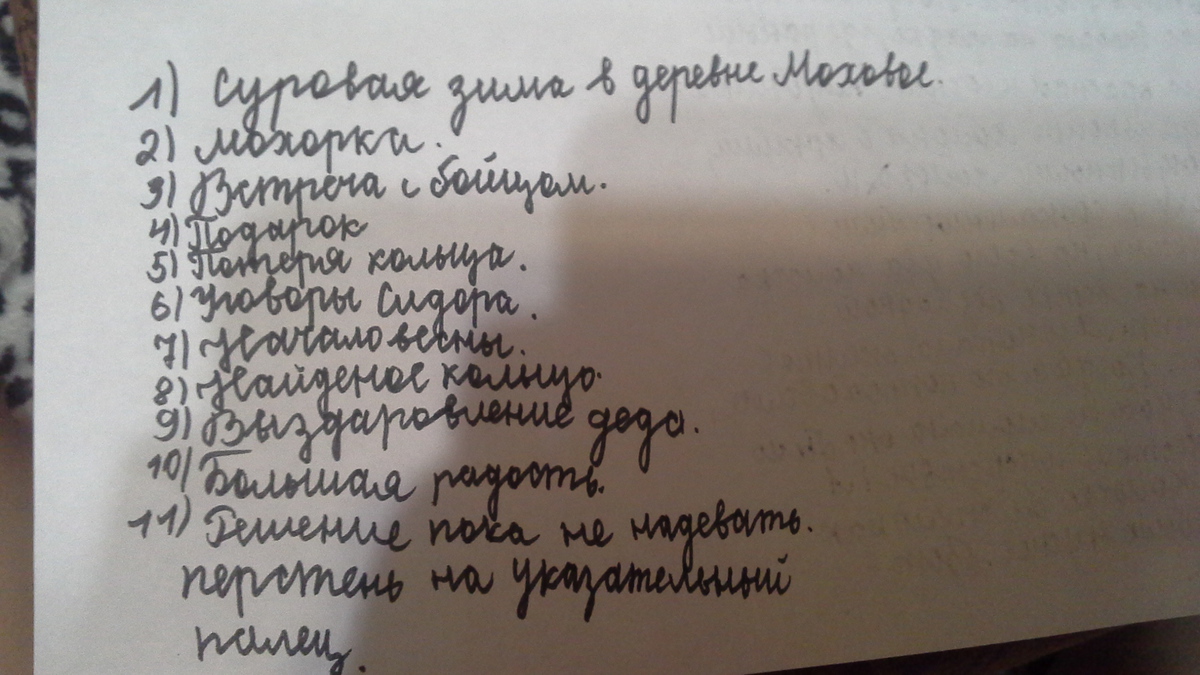 1) Суровая зима в деревне Моховое.
2) Махорка.
3) Встреча с бойцом.
4) Подарок
5) Потеря кольца.
6) Уговоры Сидора.
7) Начало весны.
8) Найденое кольцо.
9) Выздаровление деда.
10) Большая радость.
11) Решение пока не надевать.
перстень на указательный
палец.